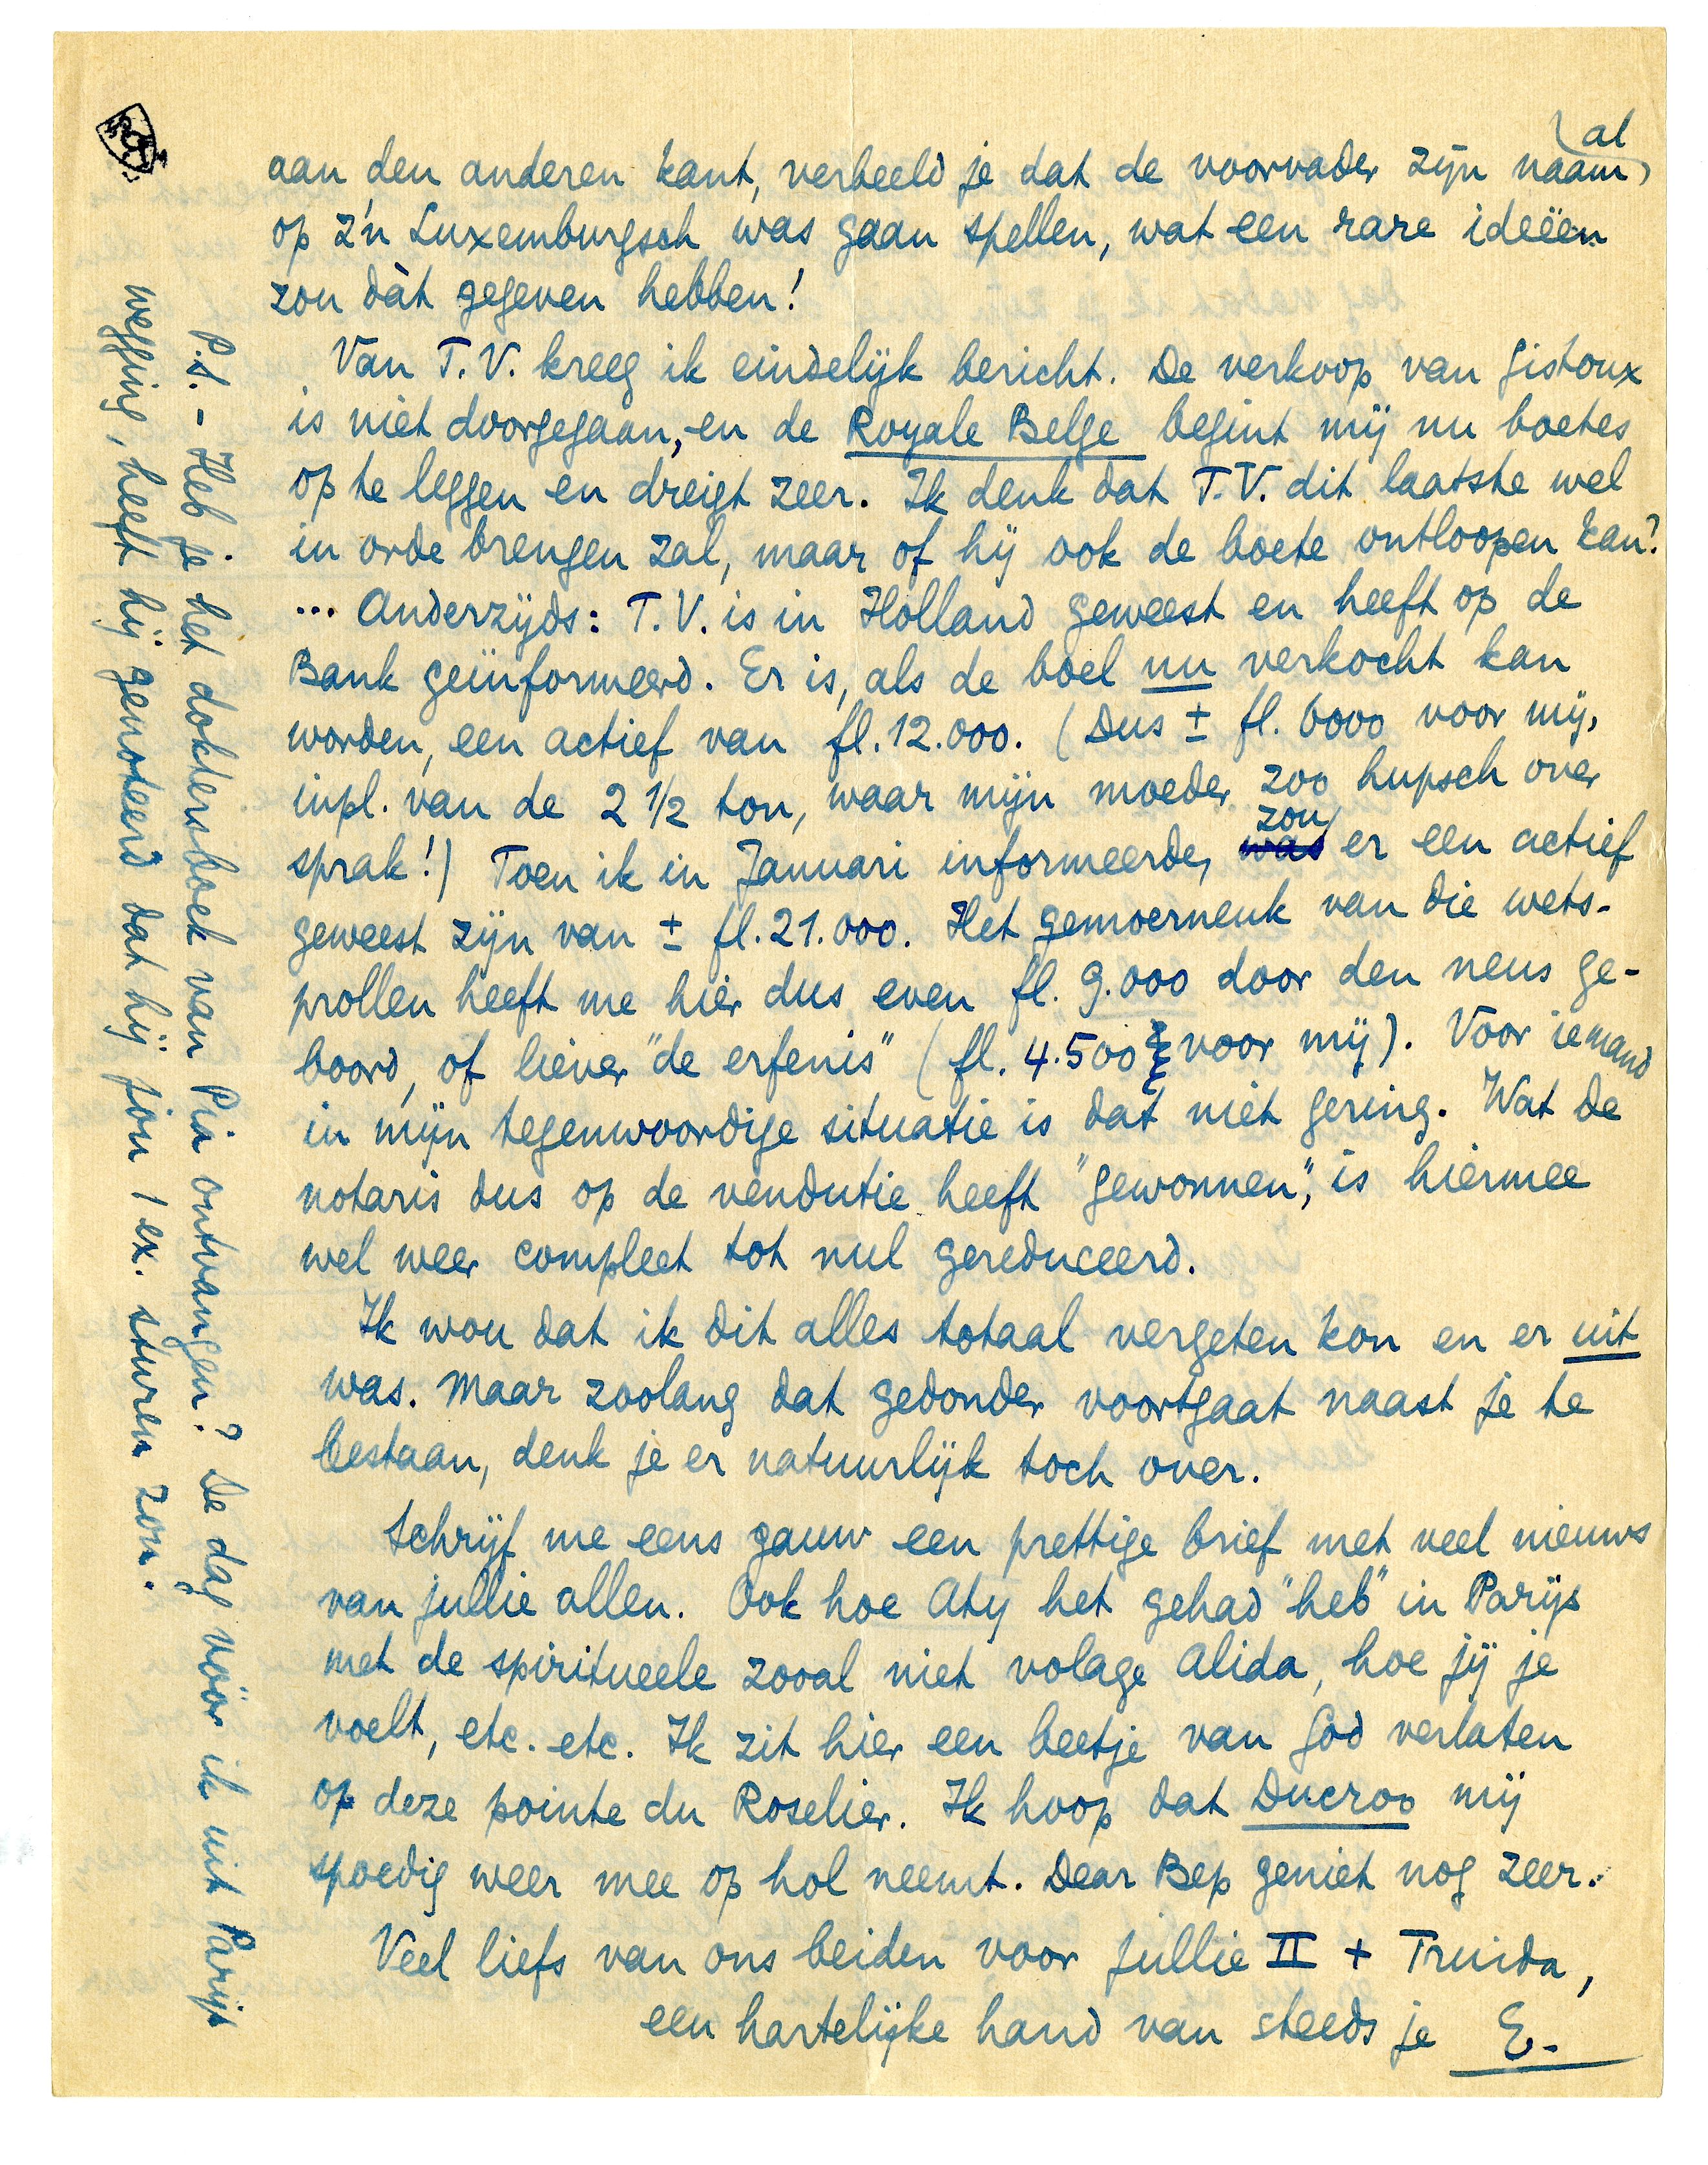 aan den anderen kant, verbeeld je dat de voorvader zijn naam al
op z'n Luxemburgsch was gaan spellen, wat een rare ideëen
zou dàt gegeven hebben!
Van T.V. kreeg ik eindelijk bericht. De verkoop van Gistoux
is niet doorgegaan, en de Royale Belge begint mij nu boetes
op te leggen en dreigt zeer. Ik denk dat T.V. dit laatste wel
in orde brengen zal, maar of hij ook de boete ontloopen kan?
... Anderzijds: T.V. is in Holland geweest en heeft op de
Bank geïnformeerd. Er is, als de boel nu verkocht kan
worden, een actief van fl. 12.000. (Dus ± fl. 6000 voor mij,
inpl. van de 2 1/2 ton, waar mijn moeder zoo hupsch over
sprak!) Toen ik in Januari informeerde, was zou er een actief
geweest zijn van ± fl. 21.000. Het gemoerneuk van die wets-
prollen heeft me hier dus even fl. 9.000 door den neus ge-
boord, of liever "de erfenis" (fl. 4.500 voor mij). Voor iemand
in mijn tegenwoordige situatie is dat niet gering. Wat de
notaris dus op de vendutie heeft "gewonnen", is hiermee
wel weer compleet tot nul gereduceerd.
Ik wou dat ik dit alles totaal vergeten kon en er uit
was. Maar zoolang dat gedonder voortgaat naast je te
bestaan, denk je er natuurlijk toch over.
Schrijf me eens gauw een prettige brief met veel nieuws
van jullie allen. Ook hoe Aty het gehad "heb" in Parijs
met de spiritueele zooal niet volage Alida, hoe jij je
voelt, etc. etc. Ik zit hier een beetje van God verlaten
op deze pointe du Roselier. Ik hoop dat Ducroo mij
spoedig weer mee op hol neemt. Dear Bep geniet nog zeer.
Veel liefs van ons beiden voor jullie II + Truida,
een hartelijke hand van steeds je E.
P.S. - Heb je het doktersboek van Pia ontvangen? De dag vóór ik uit Parijs
wegging, heeft hij genoteerd dat hij jou 1 ex. sturen zou.